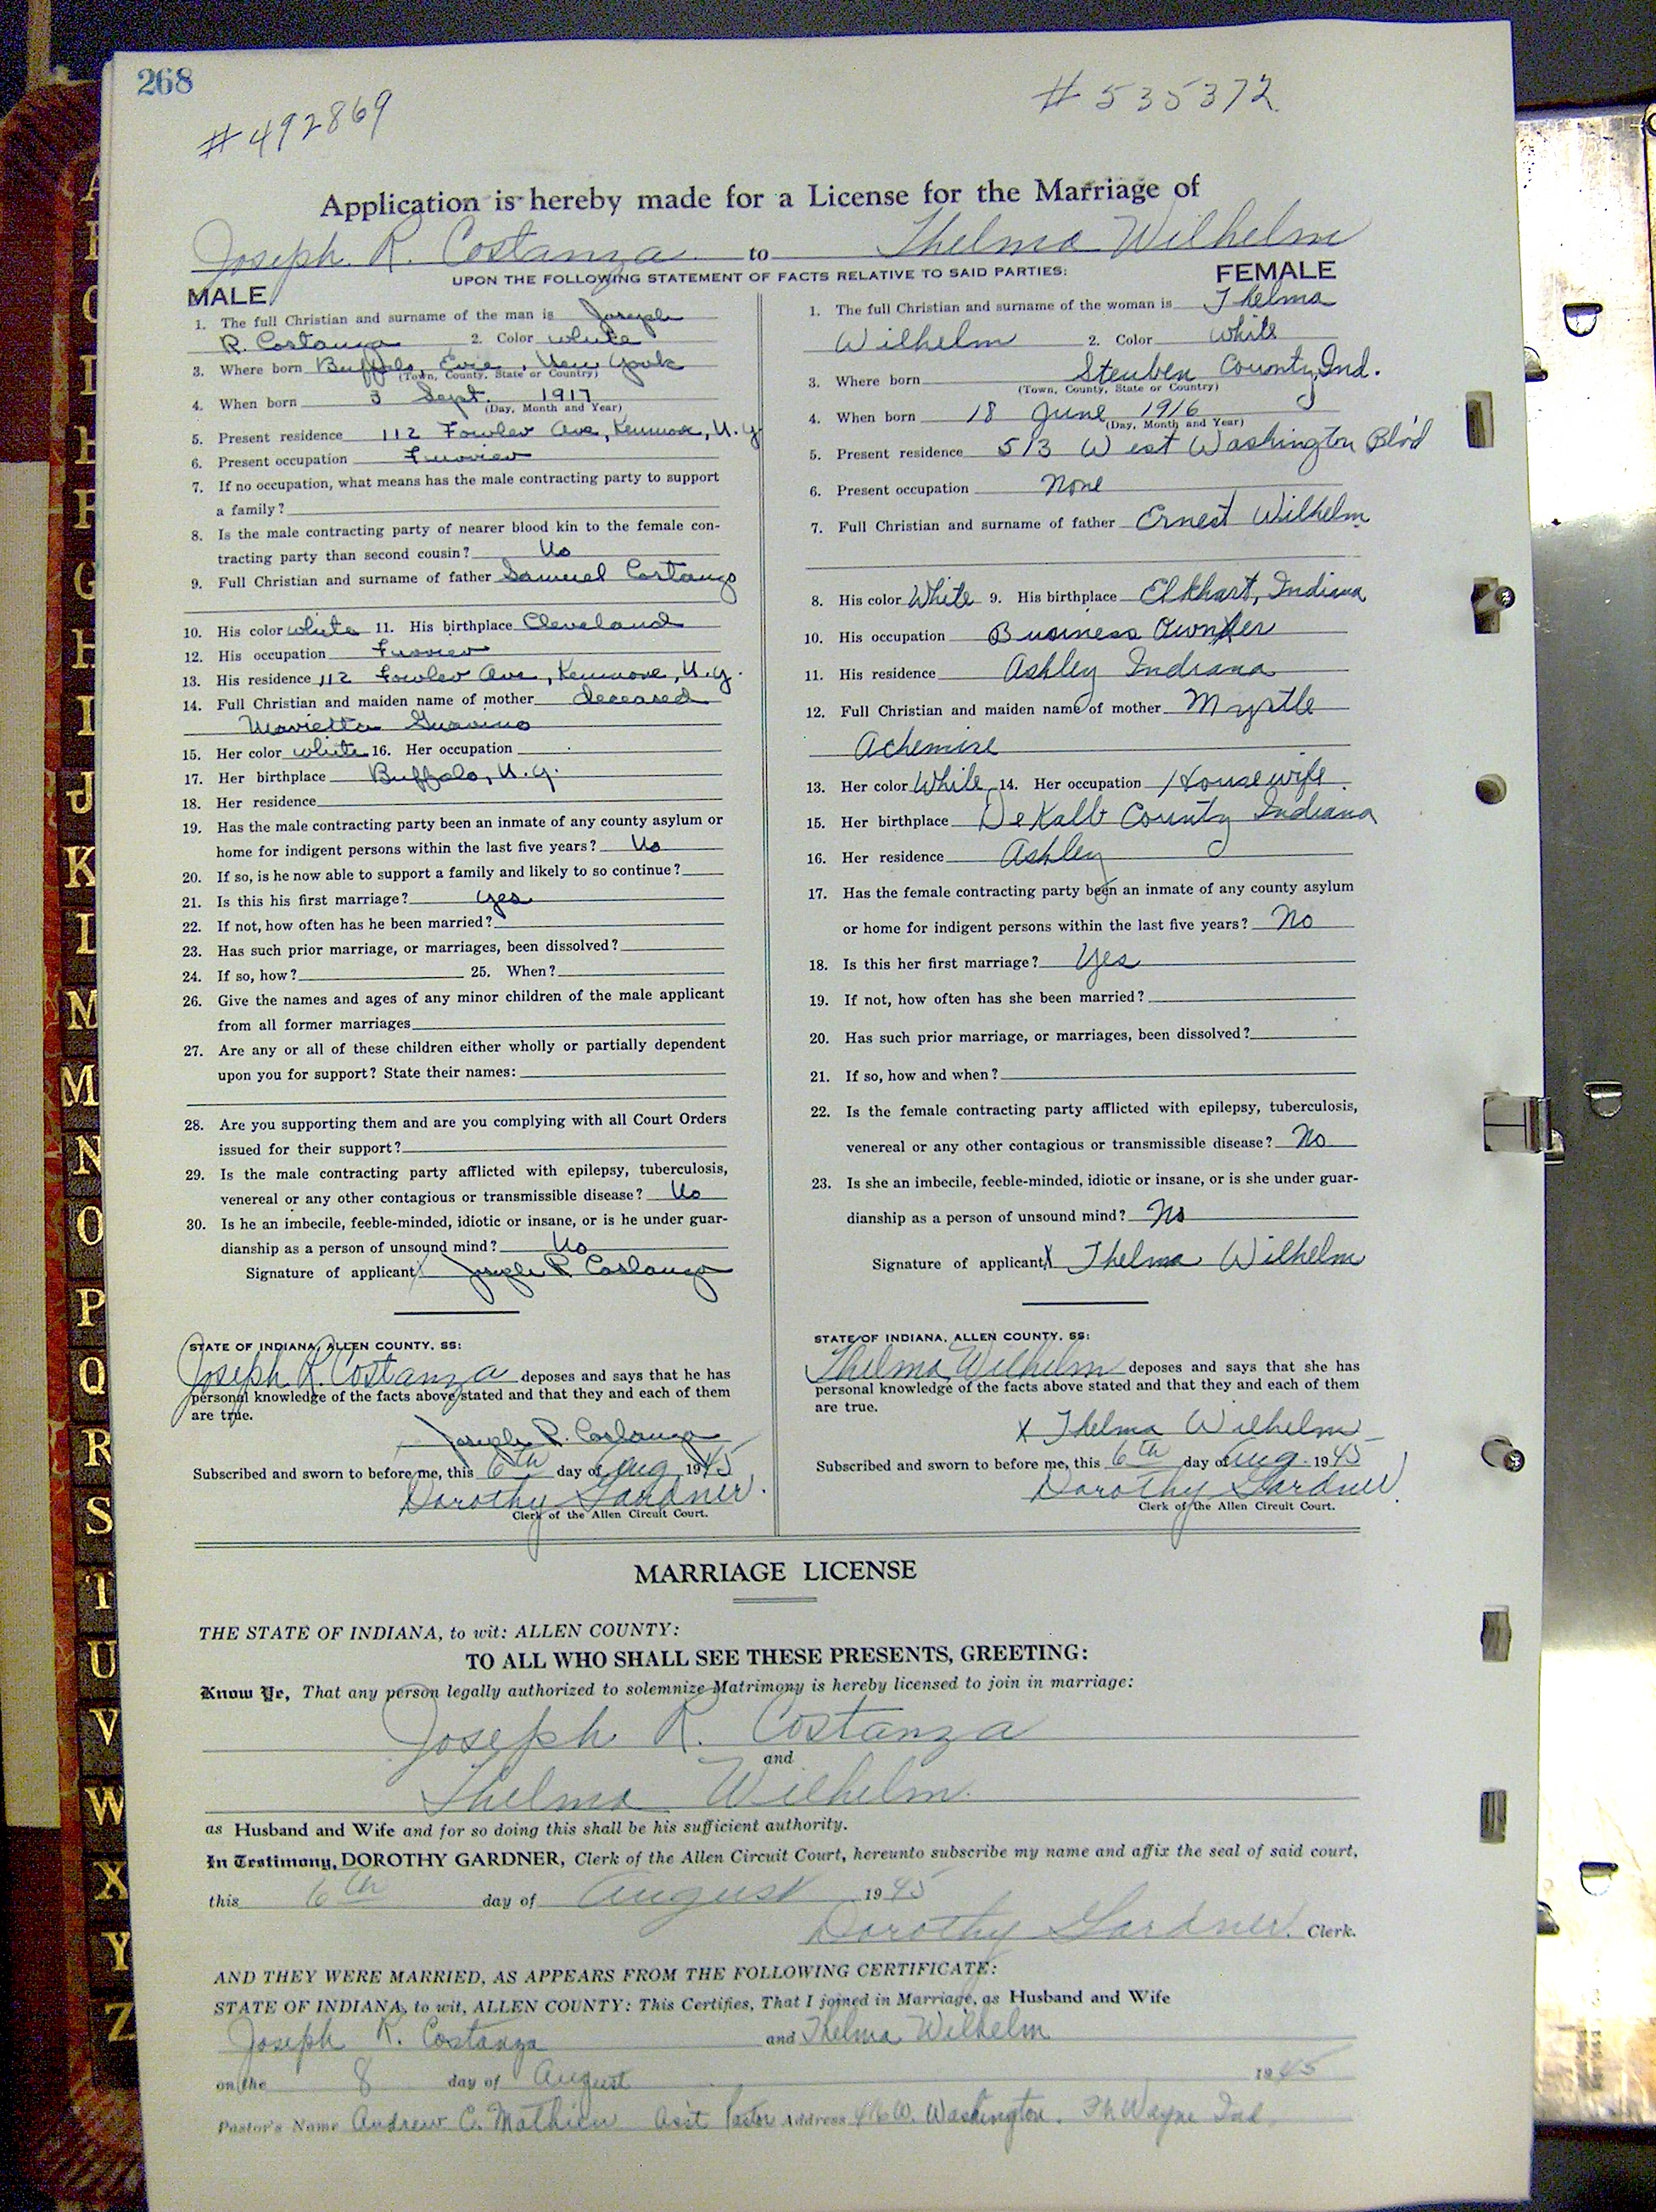 268
#492869
#535372
Application is hereby made for a License for the Marriage of
Joseph R. Costanza to Thelma Wilhelm
UPON THE FOLLOWING STATEMENT OF FACTS RELATIVE TO SAID PARTIES:
MALE
1. The full Christian and surname of the man is Joseph
R. Costanza 2. Color white
3. Where born Buffalo, Erie, New York
(Town, County, State or Country)
4. When born 3 Sept. 1917
(Day, Month and Year)
5. Present residence 112 Fowler Ave, Kenmore, N.Y.
6. Present occupation Furrier
7. If no occupation, what means has the male contracting party to support
a family?
8. Is the male contracting party of nearer blood kin to the female con-
tracting party than second cousin? No
9. Full Christian and surname of father Samuel Costanzo
10. His color white 11. His birthplace Cleveland
12. His occupation Furrier
13. His residence 112 Fowler Ave, Kenmore, N.Y.
14. Full Christian and maiden name of mother deceased
Marietta
15. Her color white 16. Her occupation
17. Her birthplace Buffalo, N.Y.
18. Her residence
19. Has the male contracting party been an inmate of any county asylum or
home for indigent persons within the last five years? No
20. If so, is he now able to support a family and likely to so continue?
21. Is this his first marriage? yes
22. If not, how often has he been married?
23. Has such prior marriage, or marriages, been dissolved?
24. If so, how? 25. When?
26. Give the names and ages of any minor children of the male applicant
from all former marriages
27. Are any or all of these children either wholly or partially dependent
upon you for support? State their names:
28. Are you supporting them and are you complying with all Court Orders
issued for their support?
29. Is the male contracting party afflicted with epilepsy, tuberculosis,
venereal or any other contagious or transmissible disease? No
30. Is he an imbecile, feeble-minded, idiotic or insane, or is he under guar-
dianship as a person of unsound mind? No
Signature of applicant X Joseph R. Costanza
STATE OF INDIANA, ALLEN COUNTY, SS:
Joseph R. Costanza deposes and says that he has
personal knowledge of the facts above stated and that they and each of them
are true.
Joseph R. Costanza
Subscribed and sworn to before me, this 6th day of Aug. 1945
Dorothy Gardner.
Clerk of the Allen Circuit Court.
FEMALE
1. The full Christian and surname of the woman is Thelma
Wilhelm 2. Color White
3. Where born Steuben County, Ind.
(Town, County, State or Country)
4. When born 18 June 1916
(Day, Month and Year)
5. Present residence 513 West Washington Blv'd
6. Present occupation None
7. Full Christian and surname of father Ernest Wilhelm
8. His color White 9. His birthplace Elkhart, Indiana
10. His occupation Business Owner
11. His residence Ashley Indiana
12. Full Christian and maiden name of mother Myrtle
Achemire
13. Her color White 14. Her occupation Housewife
15. Her birthplace DeKalb County Indiana
16. Her residence Ashley
17. Has the female contracting party been an inmate of any county asylum
or home for indigent persons within the last five years? No
18. Is this her first marriage? Yes
19. If not, how often has she been married?
20. Has such prior marriage, or marriages, been dissolved?
21. If so, how and when?
22. Is the female contracting party afflicted with epilepsy, tuberculosis,
venereal or any other contagious or transmissible disease? No
23. Is she an imbecile, feeble-minded, idiotic or insane, or is she under guar-
dianship as a person of unsound mind? No
Signature of applicant X Thelma Wilhelm
STATE OF INDIANA, ALLEN COUNTY, SS:
Thelma Wilhelm deposes and says that she has
personal knowledge of the facts above stated and that they and each of them
are true.
X Thelma Wilhelm
Subscribed and sworn to before me, this 6th day of Aug. 1945
Dorothy Gardner
Clerk of the Allen Circuit Court.
MARRIAGE LICENSE
THE STATE OF INDIANA, to wit: ALLEN COUNTY:
TO ALL WHO SHALL SEE THESE PRESENTS, GREETING:
Know Ye, That any person legally authorized to solemnize Matrimony is hereby licensed to join in marriage:
Joseph R. Costanza
and
Thelma Wilhelm
as Husband and Wife and for so doing this shall be his sufficient authority.
In Testimony, DOROTHY GARDNER, Clerk of the Allen Circuit Court, hereunto subscribe my name and affix the seal of said court,
this 6th day of August 1945
Dorothy Gardner. Clerk.
AND THEY WERE MARRIED, AS APPEARS FROM THE FOLLOWING CERTIFICATE:
STATE OF INDIANA, to wit, ALLEN COUNTY: This Certifies, That I joined in Marriage, as Husband and Wife
Joseph R. Costanza and Thelma Wilhelm
on the 8 day of August 1945
Pastor's Name Andrew C. Mathieu Ass't Pastor Address W. Washington. Ft. Wayne Ind
G
H
I
J
K
L
M
M
N
O
P
Q
R
S
T
U
V
W
X
Y
Z